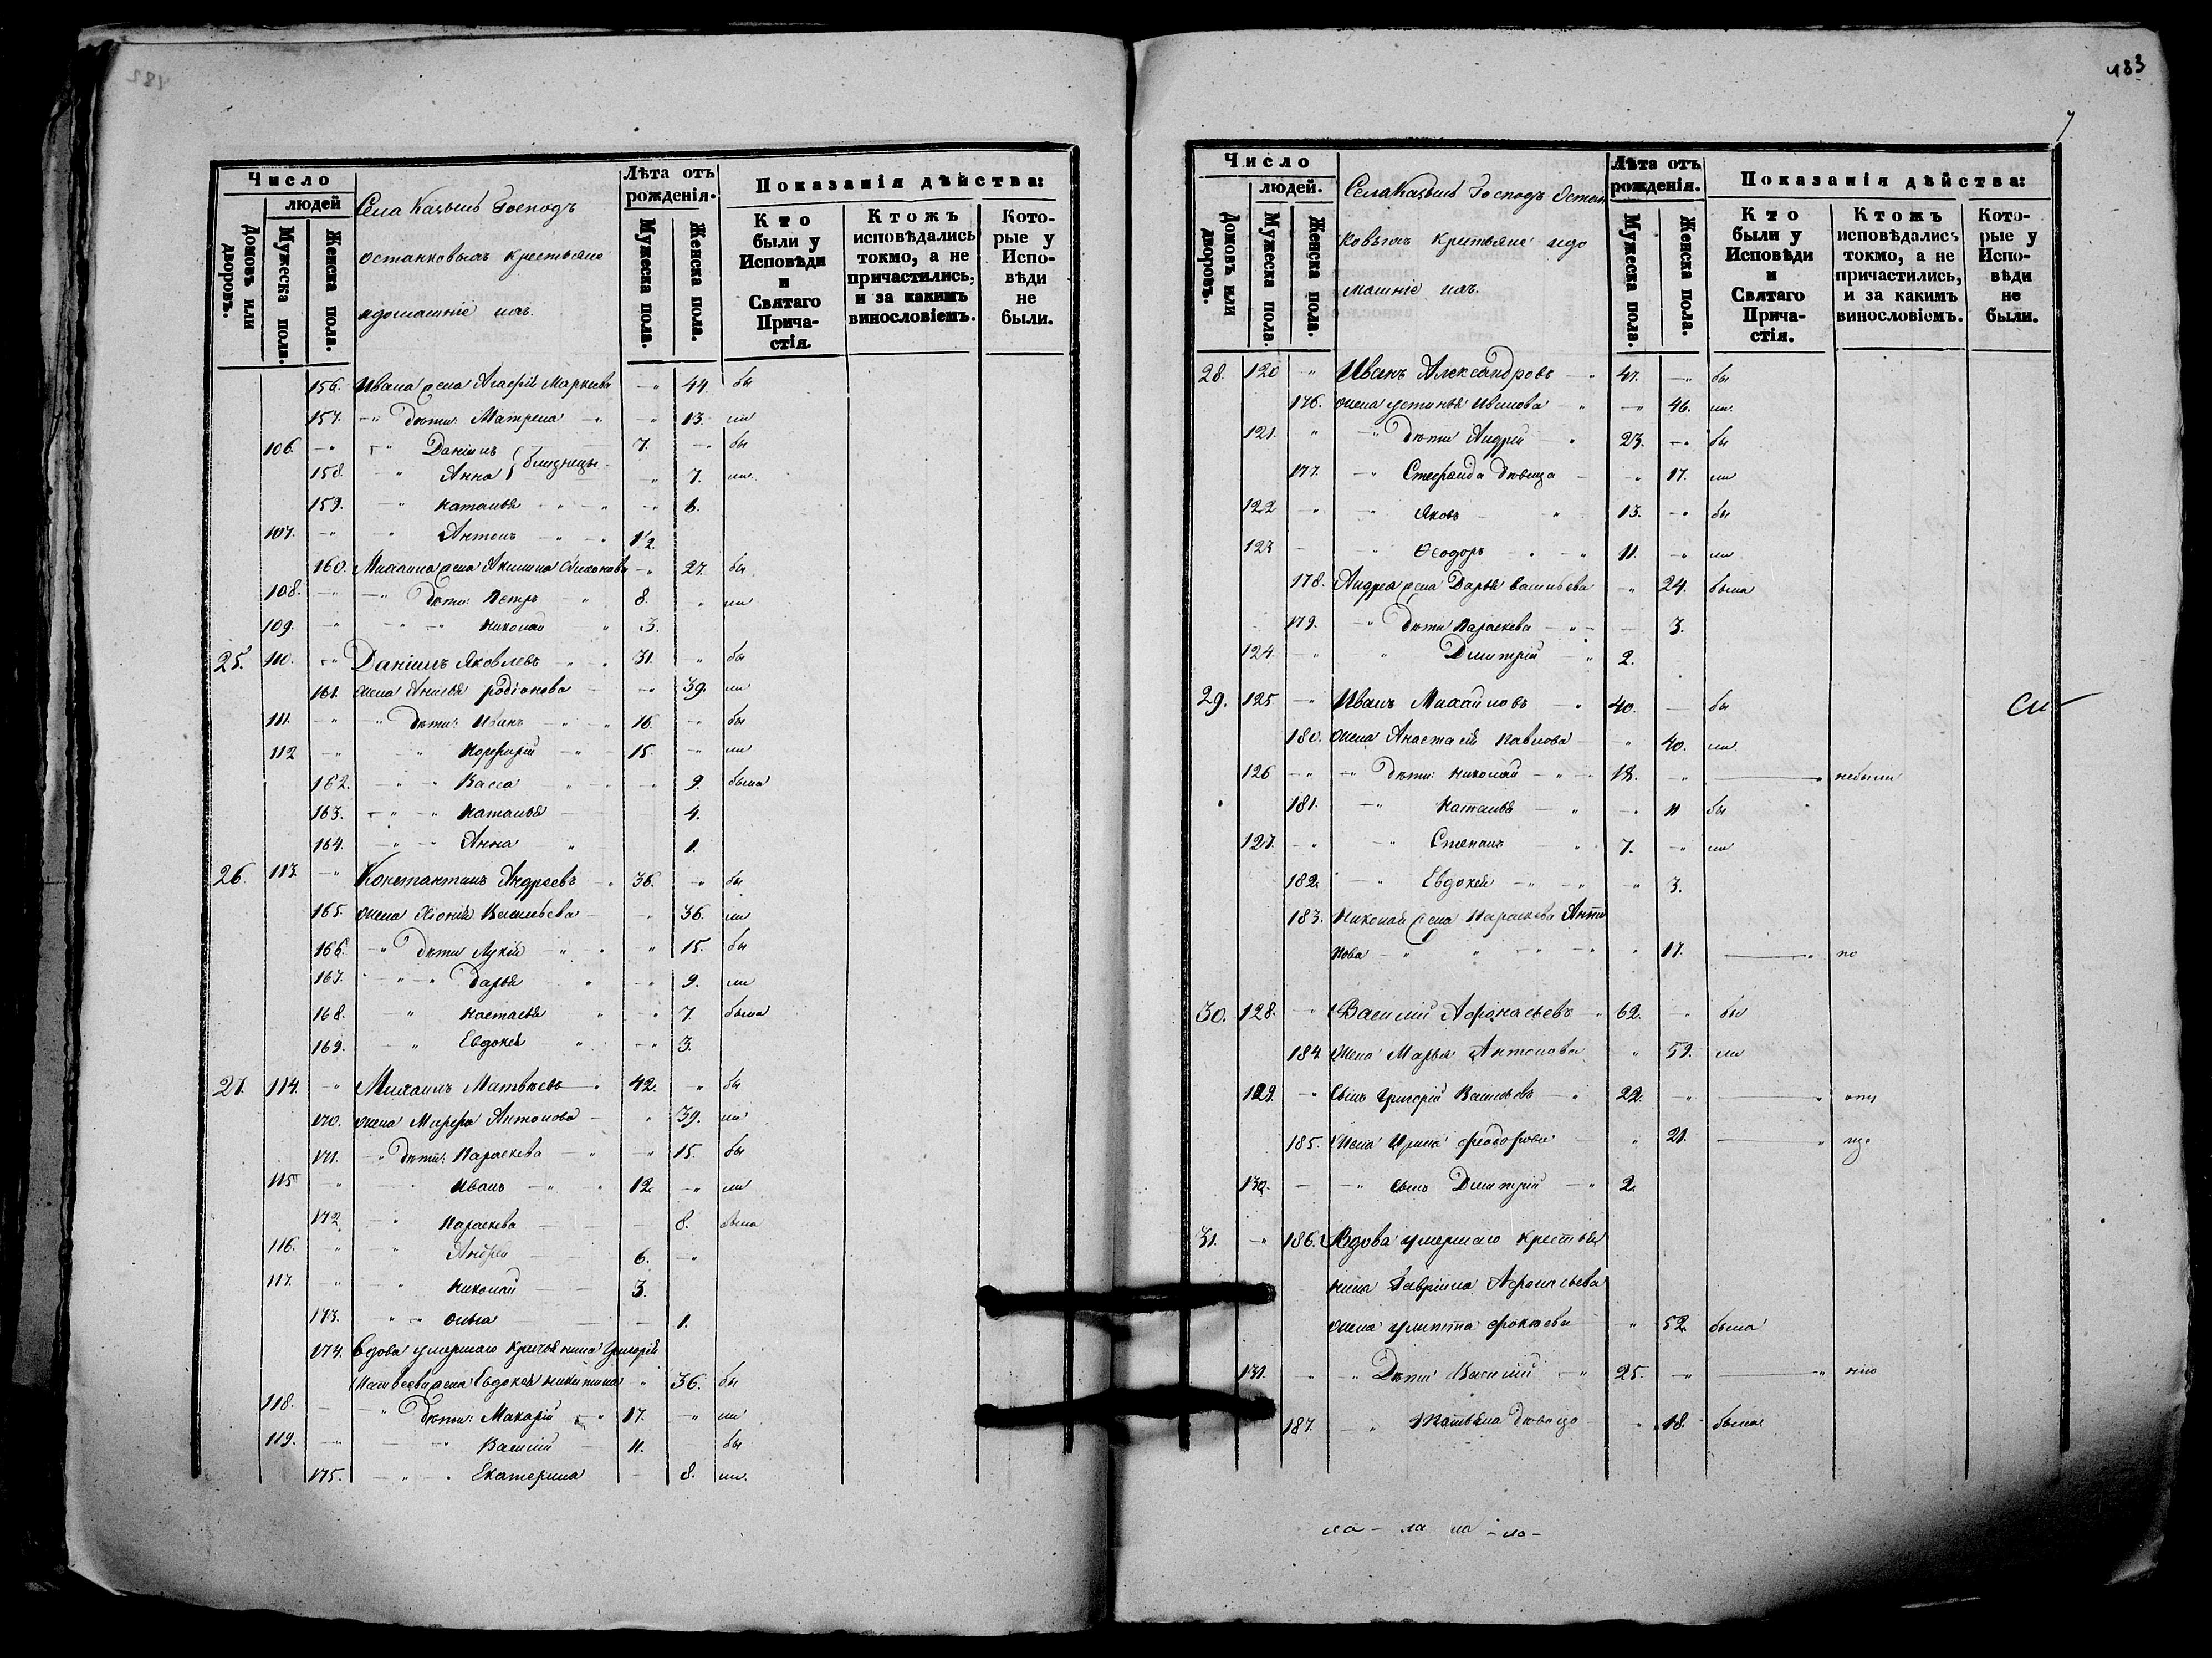 183
Число
людей
Домовъ или дворовъ.
Мужеска пола.
Женска пола.
Села Казыевъ Господъ
Останковыхъ крестьяне
идомашніе ихъ.
Лѣта отъ рожденія.
Мужеска пола.
Женска пола.
Показанія дѣйства:
Кто были у Исповѣди и Святаго Причастія.
Ктожъ исповѣдались токмо, а не причастились, и за какимъ винословіемъ.
Которые у Исповѣди не были.
156. Ивана жена Агафія Маркова 44. бы
157. дѣти: Матрена 13. ли
106. Даніилъ близнецы 7. бы
158. Анна 7. ли
159. Наталья 6.
107. Антонъ 1/2
160. Михаила жена Акилина 27. бы
108. дѣти: Петръ 8. ли
109. Николай 3.
25. 110. Даніилъ Яковлевъ 31. бы
161. жена Анисья родіонова 39. ли
111. дѣти: Иванъ 16. бы
112 Порфирій 15. ли
162. Васса 9. была
163. Наталья 4.
164. Анна 1.
26. 113. Константинъ Андреевъ 36. бы
165. жена Хіонія Васильева 36. ли
166. дѣти Лукія 15. бы
167. Дарья 9. ли
168. Настасья 7. была
169. Евдокея 3.
27. 114. Михаилъ Матвѣевъ 42. бы
170. жена Марфа Антонова 39. ли
171. дѣти: Параскева 15. бы
115 Иванъ 12. ли
172. Параскева 8. была
116. Андрей 6.
117. Николай 3.
173. Ольга 1.
174. Вдова умершаго Григорія
Матвеева жена Евдокея Никитина 36. бы
118. дѣти: Макарій 17. ли
119. Василій 11. бы
175. Екатерина 8. ли.
Число
людей.
Домовъ или дворовъ.
Мужеска пола.
Женска пола.
Села Казыевъ Господъ Остан
ковыхъ идо
машніе ихъ.
Лѣта отъ рожденія.
Мужеска пола.
Женска пола.
Показанія дѣйства:
Кто были у Исповѣди и Святаго Причастія.
Ктожъ исповѣдались токмо, а не причастились, и за какимъ винословіемъ.
Которые у Исповѣди не были.
28. 120 Иванъ Александровъ 47. бы
176. жена устинья Иванова 46. ли.
121. дѣти Андрей 23. бы
177. Стефанида дѣвица 17. ли
122 Яковъ 13. бы
123 Ѳеодоръ 11. ли
178. Андрея жена Дарья Васильева 24. была
179. дѣти Параскева 3.
124. Дмитрій 2.
29. 125. Иванъ Михайловъ 40. бы
180. жена Анастасія Павлова 40. ли
126 дѣти: Николай 18. небыли
181. Наталья 11 бы
127. Степанъ 7. ли
182. Евдокея 3.
183. Николая жена Параскева Анти
пова 17. по
30. 128. Василій Афонасьевъ 62. бы
184. Жена Марья Антонова 59. ли
129. сынъ Григорій Васильевъ 22.
185. Жена Ирина федорова 21.
130. сынъ Дмитрій 2.
31. 186. Вдова умершаго крестья
нина Гавріила Афонасьева
жена улитта фокѣева 52 была
131. Дѣти Василій 25.
187. Татьяна дѣвица 18. была